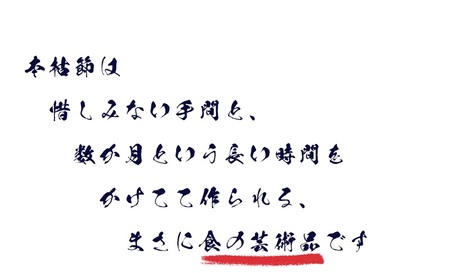 本枯節は
惜しみない手間と、
数か月という長い時間を
かけてて作られる、
まさに食の芸術品です